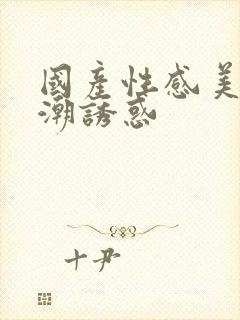 國產性感美
潮誘惑
十尹